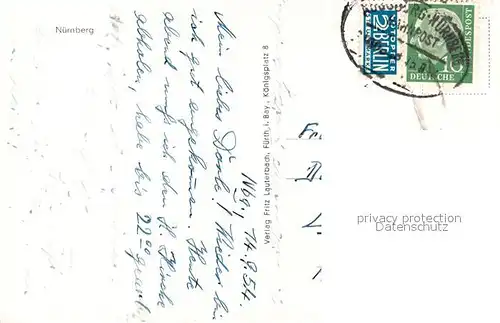 Nürnberg
Nbg., 14.9.54.
Mein liebes Dorle! Wieder bin
ich gut angekommen. Heute
abend muß ich den H. Hirsche
abholen, habe bis 22°°
Verlag Fritz Lauterbach, Fürth i. Bay., Königsplatz 8
NOTOPFER
2 BERLIN
STEUERMARKE
DEUTSCHE
BUNDESPOST
10
BAHNPOST
privacy protection
Datenschutz